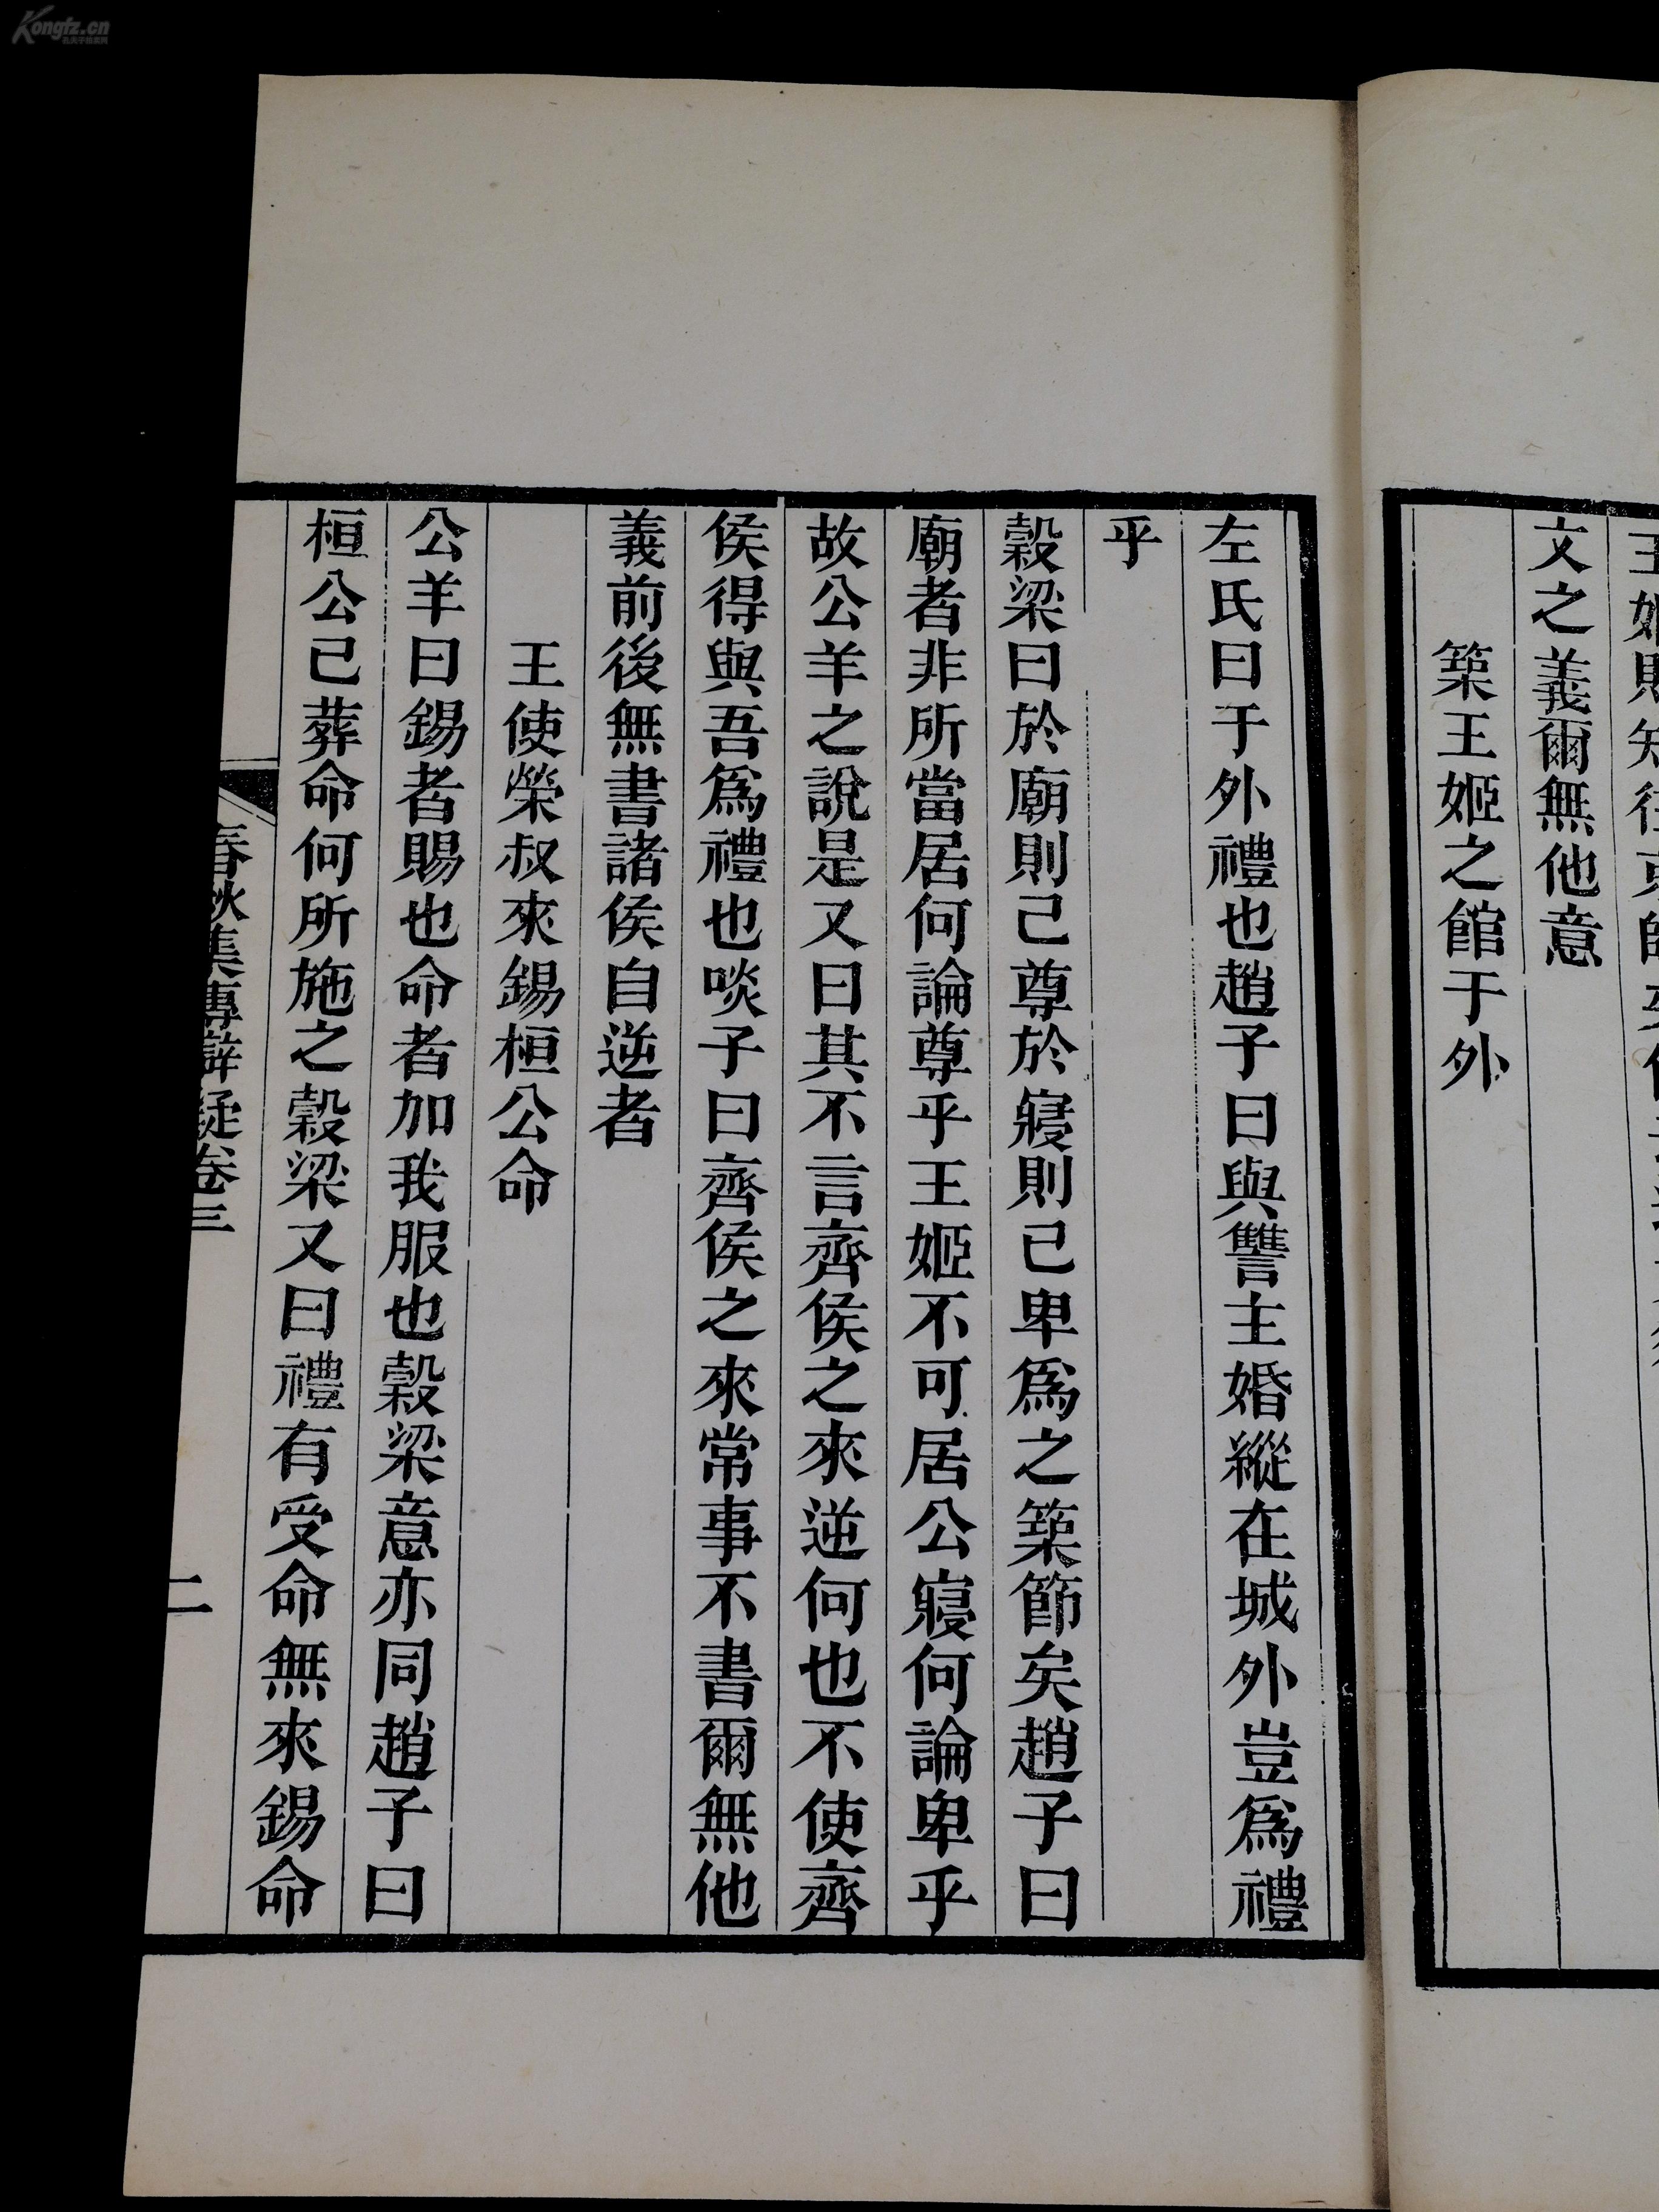 文之義爾無他意
築王姬之館于外
左氏曰于外禮也趙子曰與讐主婚縱在城外豈爲禮
乎
穀梁曰於廟則已尊於寢則已卑爲之築節矣趙子曰
廟者非所當居何論尊乎王姬不可居公寢何論卑乎
故公羊之說是又曰其不言齊侯之來逆何也不使齊
侯得與吾爲禮也啖子曰齊侯之來常事不書爾無他
義前後無書諸侯自逆者
王使榮叔來錫桓公命
公羊曰錫者賜也命者加我服也穀梁意亦同趙子曰
桓公已葬命何所施之穀梁又曰禮有受命無來錫命
春秋集傳辯疑卷三
二
Kongfz.cn